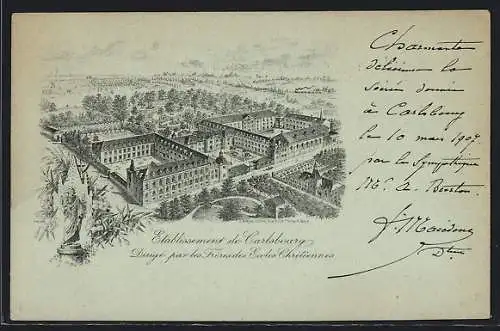 Etablissement de Carlsbourg
Dirigé par les Frères des Ecoles Chrétiennes
Charmante
délicieuse la
soirée donnée
à Carlsbourg
le 10 mars 1907.
par le sympathique
Mr. A.